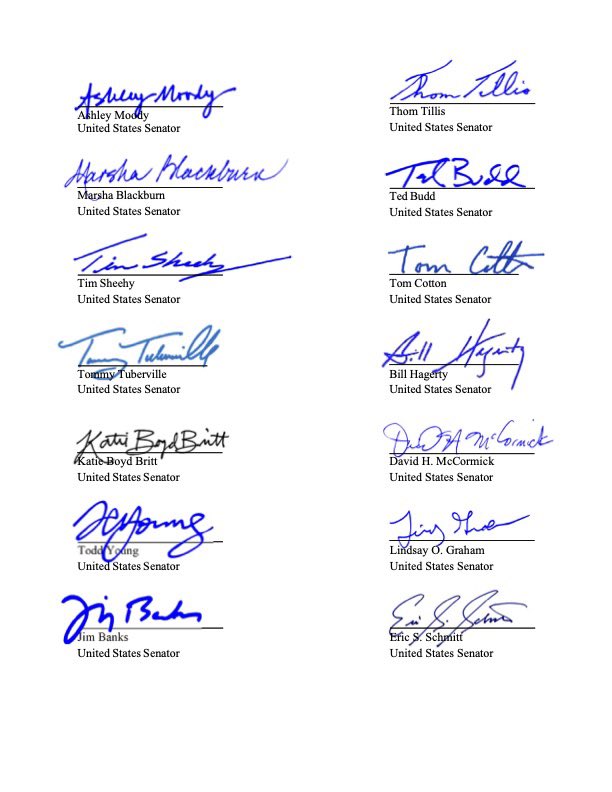 Ashley Moody
Ashley Moody
United States Senator
Thom Tillis
Thom Tillis
United States Senator
Marsha Blackburn
Marsha Blackburn
United States Senator
Ted Budd
Ted Budd
United States Senator
Tim Sheehy
Tim Sheehy
United States Senator
Tom Cotton
Tom Cotton
United States Senator
Tommy Tuberville
Tommy Tuberville
United States Senator
Bill Hagerty
Bill Hagerty
United States Senator
Katie Boyd Britt
Katie Boyd Britt
United States Senator
David H. McCormick
United States Senator
Todd Young
United States Senator
Lindsay O. Graham
United States Senator
Jim Banks
Jim Banks
United States Senator
Eric S. Schmitt
Eric S. Schmitt
United States Senator